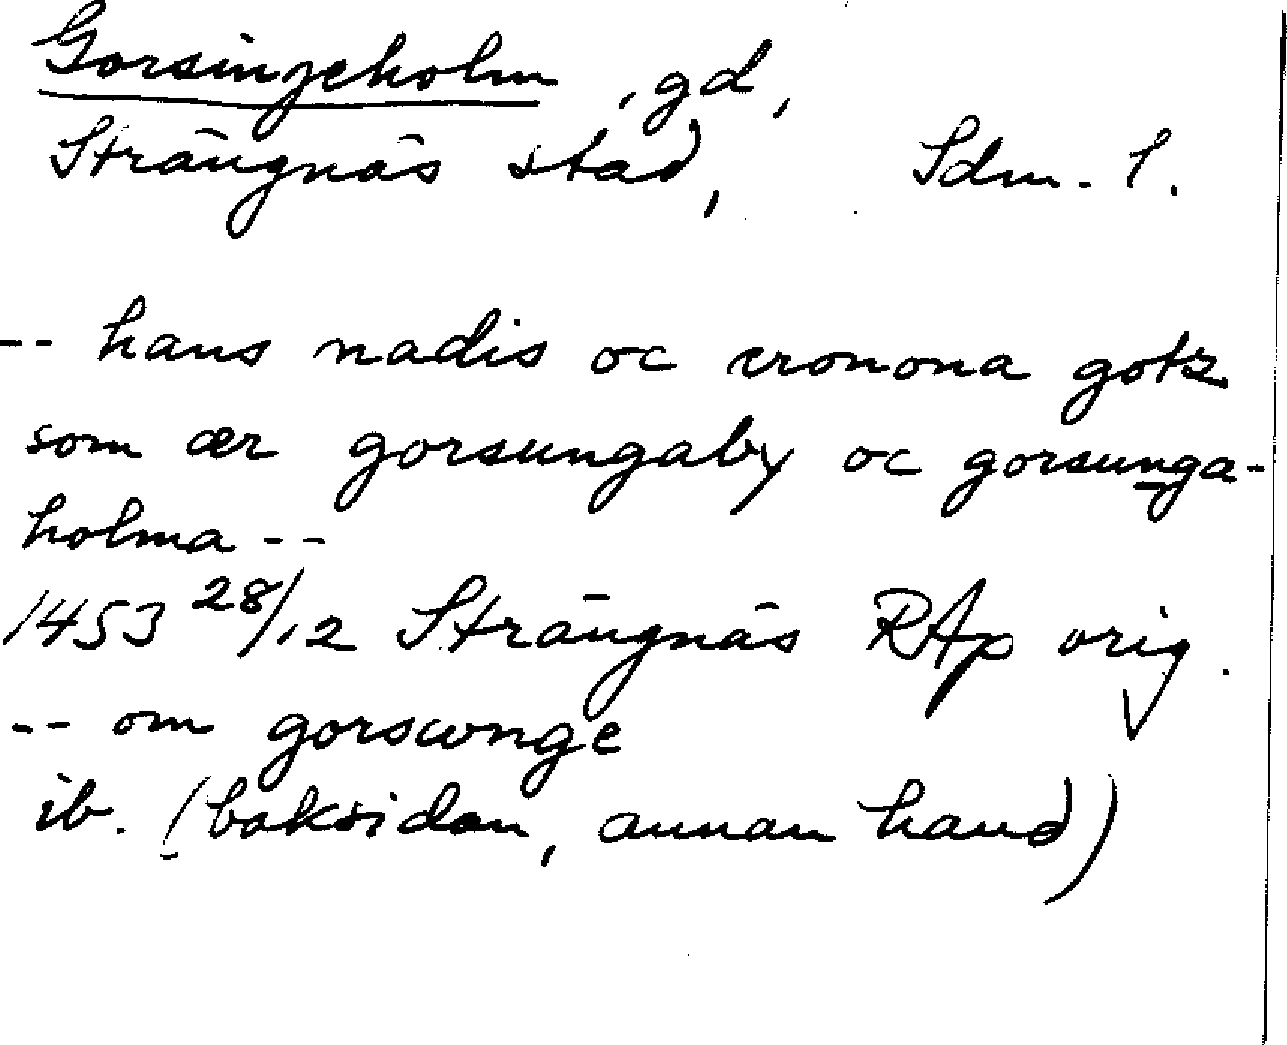 Gorsingeholm, gd,
Strängnäs stad, Sdm. l.
-- hans nadis oc cronona gotz
som ær gorsungaby oc gorsunga-
holma --
1453 28/12 Strängnäs RAp orig.
-- om gorswnge
ib. (baksidan, annan hand)